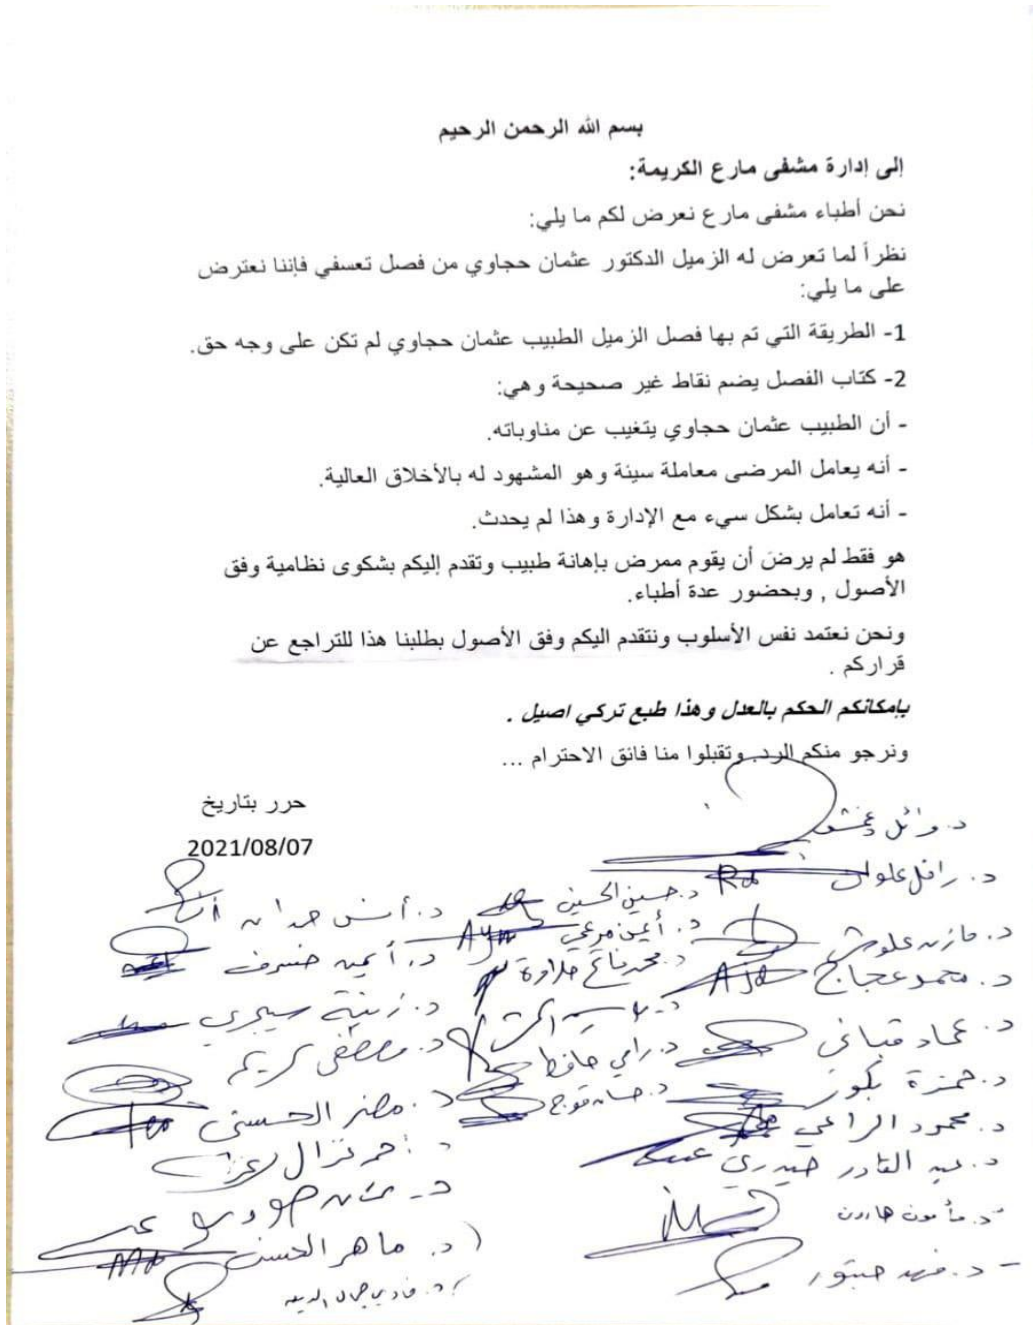 بسم الله الرحمن الرحيم
إلى إدارة مشفى مارع الكريمة:
نحن أطباء مشفى مارع نعرض لكم ما يلي:
نظراً لما تعرض له الزميل الدكتور عثمان حجاوي من فصل تعسفي فإننا نعترض
على ما يلي:
1- الطريقة التي تم بها فصل الزميل الطبيب عثمان حجاوي لم تكن على وجه حق.
2- كتاب الفصل يضم نقاط غير صحيحة وهي:
- أن الطبيب عثمان حجاوي يتغيب عن مناوباته.
- أنه يعامل المرضى معاملة سيئة وهو المشهود له بالأخلاق العالية.
- أنه تعامل بشكل سيء مع الإدارة وهذا لم يحدث.
هو فقط لم يرضَ أن يقوم ممرض بإهانة طبيب وتقدم إليكم بشكوى نظامية وفق
الأصول , وبحضور عدة أطباء.
ونحن نعتمد نفس الأسلوب ونتقدم اليكم وفق الأصول بطلبنا هذا للتراجع عن
قراركم .
بإمكانكم الحكم بالعدل وهذا طبع تركي اصيل .
ونرجو منكم الرد. وتقبلوا منا فائق الاحترام ...
حرر بتاريخ
2021/08/07
د. وائل
د. رافل علوان
د. حسين الحسين
د. أنس حمدان
د. مازن علوش
د. أيمن مرعي
د. أيمن
د. محمد عجاج
د. محمد فاتح حلاوة
د. زينة سيجري
د. عماد قباني
د. ياسر
د. مصطفى كريم
د. حمزة بكور
د. رامي حافظ
د. مضر الحسين
د. محمود الراعي
د. حسان قوجة
د. أحمد غزال
د. عبد القادر حيدري
د. مأمون هارون
د. ماهر الحسن
د. فهد
د. فادي جمال الدين